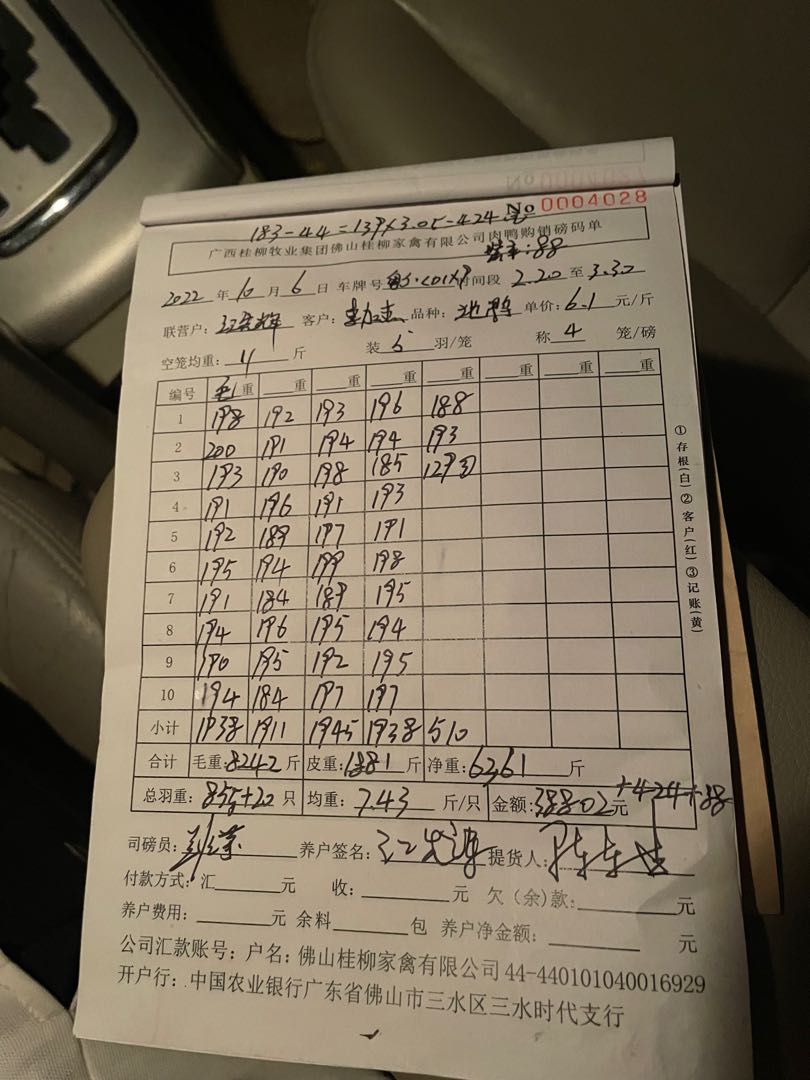 No 0004028
183-44=139×3.05-424元
广西桂柳牧业集团佛山桂柳家禽有限公司肉鸭购销磅码单
2022年10月6日 车牌号 时间段 2.20至3.30
联营户: 客户: 品种: 单价:6.1元/斤
空笼均重:4斤 装5羽/笼 称4笼/磅
编号 毛重 重 重 重 重 重 重 重
1 198 192 193 196 188
2 200 191 194 194 193
3 193 190 198 185 129③
4 191 196 191 193
5 192 189 197 191
6 195 194 199 198
7 191 184 189 195
8 194 196 195 194
9 190 195 192 195
10 194 184 197 197
小计 1938 1911 1945 1938 510
合计 毛重:8242斤 皮重:1881斤 净重:6361斤
总羽重:855+20只 均重:7.43斤/只 金额:38802元+424+88
司磅员: 养户签名: 提货人:
付款方式:汇元 收:元 欠(余)款:元
养户费用:元 余料包 养户净金额:元
公司汇款账号:户名:佛山桂柳家禽有限公司 44-440101040016929
开户行:中国农业银行广东省佛山市三水区三水时代支行
①存根(白)②客户(红)③记账(黄)